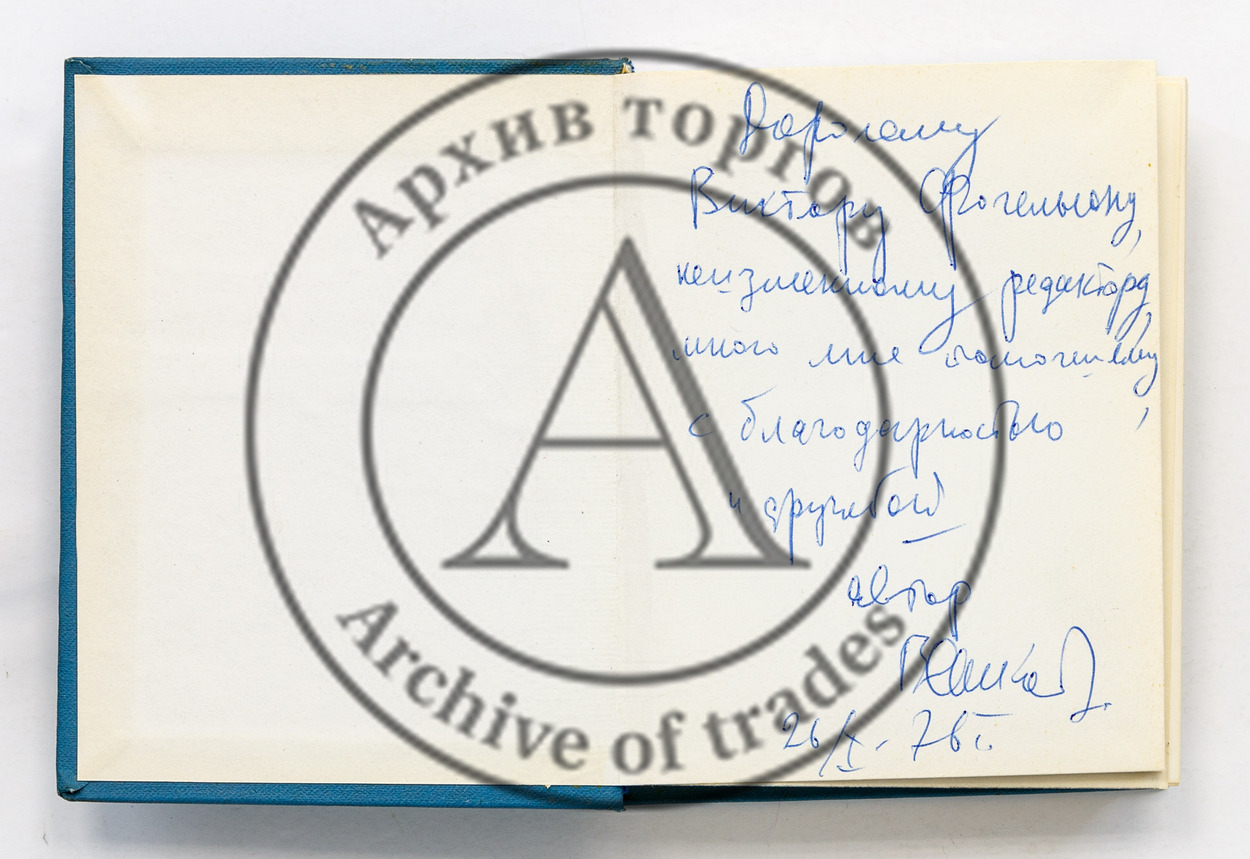 Архив торгов
Дорогому
Виктору Фогельсону,
неизменному редактору,
много мне помогшему,
с благодарностью
и дружбой
автор
26/X. 76 г.
Archive of trades